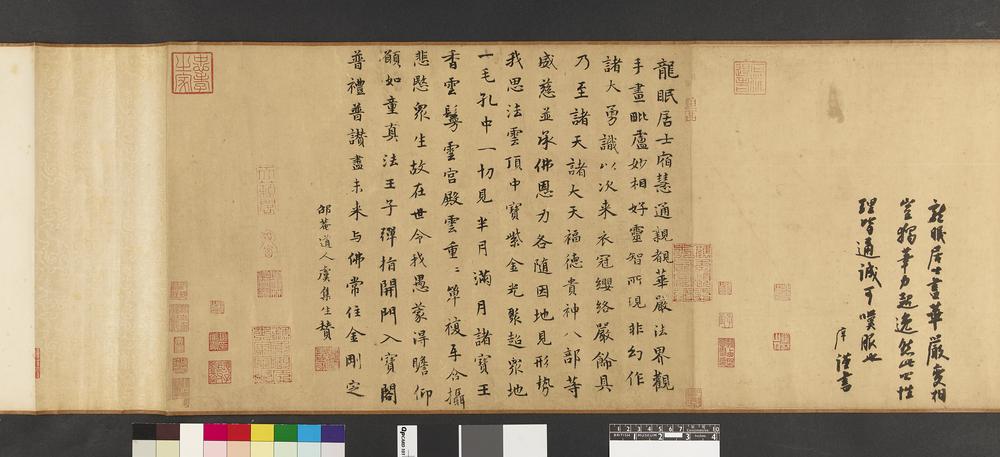 龍眠居士畫華嚴變相
豈獨筆力超逸然此公性
理皆通誠可嘆服也
庠謹書
龍眠居士宿慧通親觀華嚴法界觀
手畫毗盧妙相好靈智所現非幻作
諸大勇識以次來衣冠纓絡嚴飾具
乃至諸天諸大天福德貴神八部等
威慈並承佛恩力各隨因地見形勢
我思法雲頂中寶紫金光聚超衆地
一毛孔中一切見半月滿月諸寶王
香雲鬘雲宮殿雲重〻單複互含攝
悲愍衆生故在世令我愚蒙得瞻仰
願如童真法王子彈指開門入寶閣
普禮普讚盡未來与佛常住金剛定
邵菴道人虞集生贊
忠孝之家
BRITISH MUSEUM